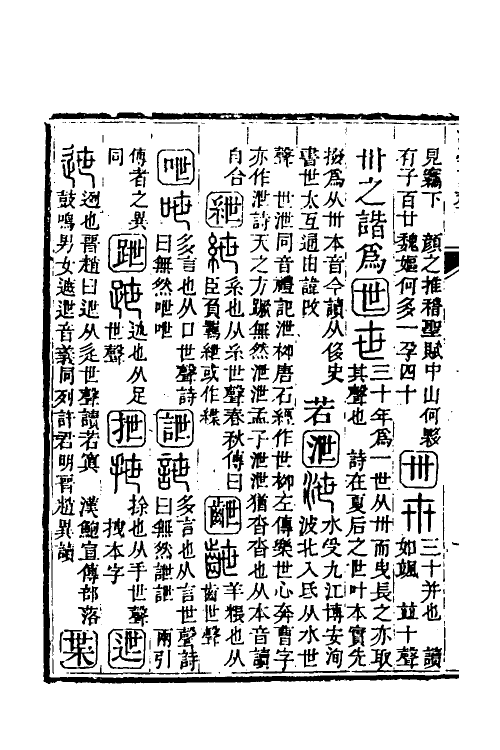 見竊下　顏之推稽聖賦中山何夥
有子百廿魏嫗何多一孕四十
卅 卅 三十并也　讀
如颯　竝十聲
卅之諧爲世 世 三十年爲一世从卅而曳長之亦取
其聲也　詩在夏后之世叶本實先
撥爲从卅本音今讀从後史
書世太互通由諱改
若泄 泄 水受九江博安洵
波北入氐从水世
聲　世泄同音禮記泄柳唐石經作世柳左傳樂世心奔曹字
亦作泄詩天之方蹶無然泄泄孟子泄泄猶沓沓也从本音讀
自合
紲 紲 系也从糸世聲春秋傳曰
臣負羈紲或作緤
齛 齛 羊粻也从
齒世聲
呭 呭 多言也从口世聲詩
曰無然呭呭
詍 詍 多言也从言世聲詩
曰無然詍詍　兩引
傳者之異
同
跇 跇 述也从足
世聲
抴 抴 捈也从手世聲
拽本字
迣
迣 迾也晉趙曰迣从辵世聲讀若寘　漢鮑宣傳部落
鼓鳴男女遮迣音義同列許君明晉趙異讀
枼